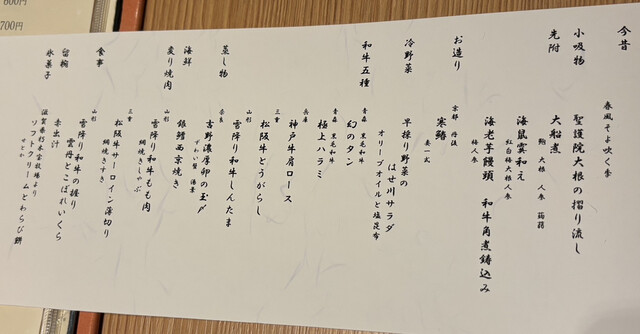 今昔
春風そよ吹く季
小吸物
聖護院大根の摺り流し
先附
大船煮
鮑 大根 人参 蒟蒻
海鼠霙和え
紅白梅大根人参
海老芋饅頭 和牛角煮鋳込み
梅人参
お造り
京都 丹後
寒鰆
妻一式
冷野菜
早採り野菜のはせ川サラダ
オリーブオイルと塩昆布
和牛五種
青森 黒毛和牛
幻のタン
青森 黒毛和牛
極上ハラミ
兵庫
神戸牛肩ロース
三重
松阪牛とうがらし
山形
雪降り和牛しんたま
蒸し物
奈良
吉野濃厚卵の玉〆
ずわい蟹 湯葉
海鮮
銀鱈西京焼き
炙り焼肉
山形
雪降り和牛もも肉
網焼きしゃぶ
三重
松阪牛サーロイン薄切り
網焼きすき
食事
山形
雪降り和牛の握り
雲丹とこぼれいくら
留椀
赤出汁
氷菓子
ソフトクリームとわらび餅
せとか
600円
700円